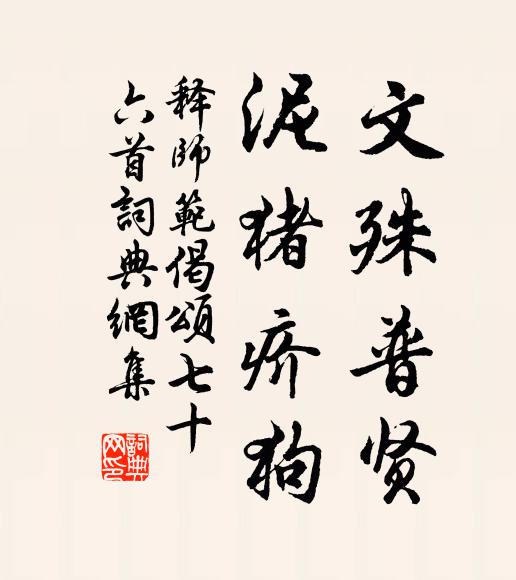 文殊普贤
泥猪疥狗
释师範偈颂七十
六首詞典網集
詞典网印